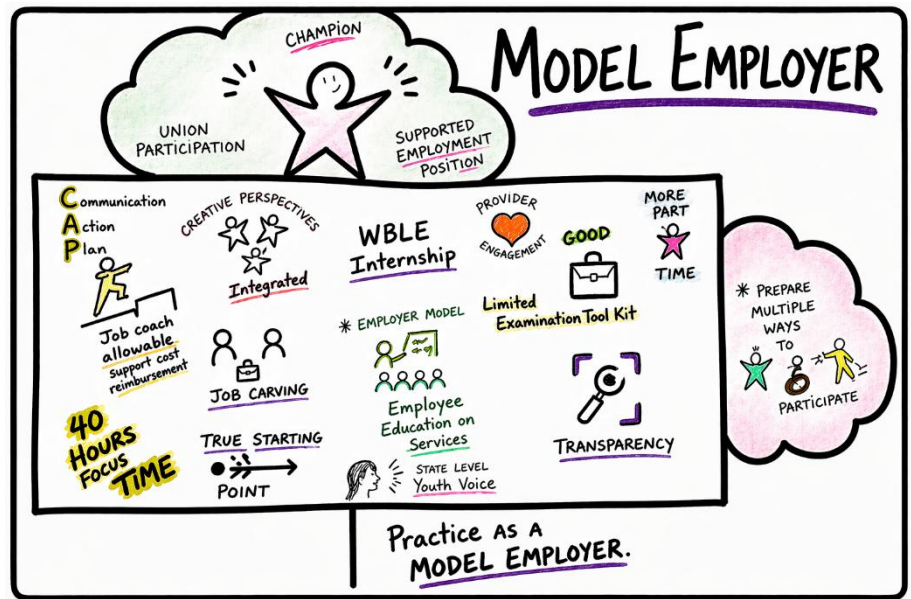 MODEL EMPLOYER
CHAMPION
UNION
PARTICIPATION
SUPPORTED
EMPLOYMENT
POSITION
Communication
Action
Plan
Job coach
allowable
support cost
reimbursement
40
HOURS
FOCUS
TIME
CREATIVE PERSPECTIVES
Integrated
JOB CARVING
TRUE STARTING
POINT
WBLE
Internship
* EMPLOYER MODEL
Employee
Education on
Services
STATE LEVEL
Youth Voice
PROVIDER
ENGAGEMENT
GOOD
Limited
Examination Tool Kit
TRANSPARENCY
MORE
PART
TIME
* PREPARE
MULTIPLE
WAYS
TO
PARTICIPATE
Practice AS A
MODEL EMPLOYER.